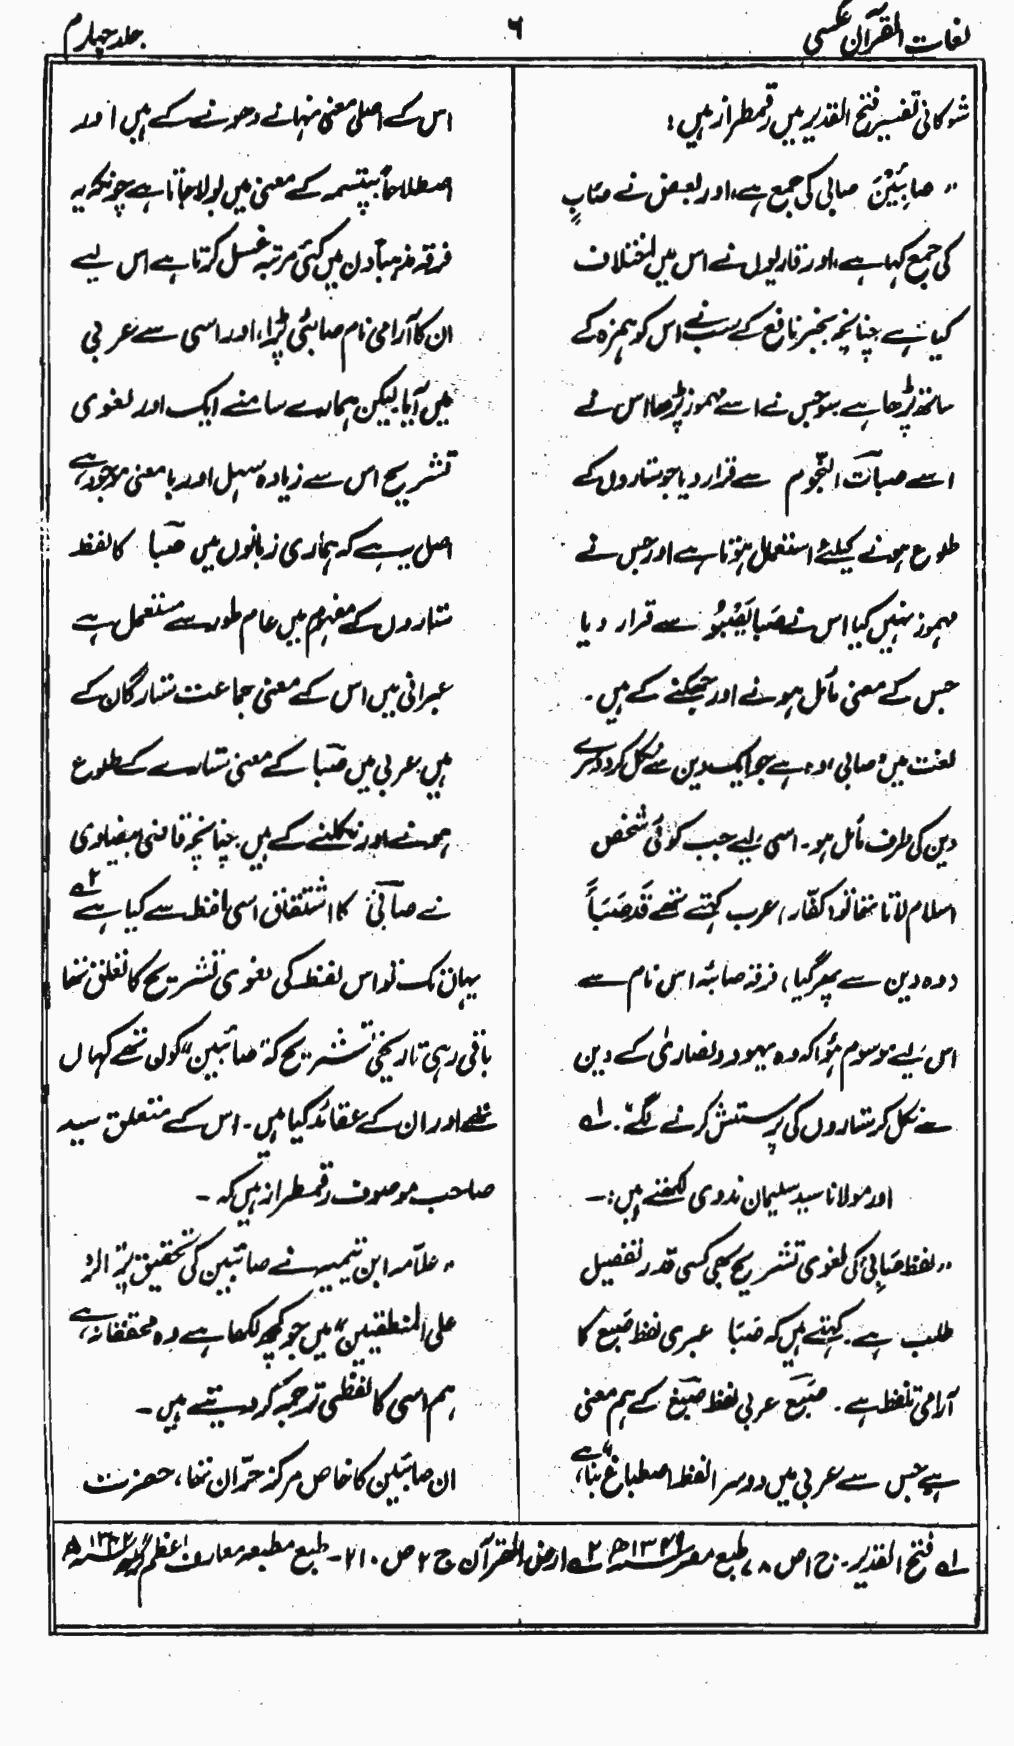 لغات القرآن عکسی
۶
جلد چہارم
شوکانی تفسیر فتح القدیر میں رقمطراز ہیں:
"صابِئِیْنَ صابی کی جمع ہے، اور بعض نے صَابٍ
کی جمع کہا ہے، اور قاریوں نے اس میں اختلاف
کیا ہے چنانچہ بجز نافع کے سب نے اس کو ہمزہ کے
ساتھ پڑھا ہے سو جس نے اسے مہموز پڑھا اس نے
اسے صبأت النّجوم سے قرار دیا جو ستاروں کے
طلوع ہونے کیلئے استعمال ہوتا ہے اور جس نے
مہموز نہیں کیا اس نے صَبَا یَصْبُوْ سے قرار دیا
جس کے معنی مائل ہونے اور جھکنے کے ہیں۔
لغت میں صابی، وہ ہے جو ایک دین سے نکل کر دوسرے
دین کی طرف مائل ہو۔ اسی لیے جب کوئی شخص
اسلام لاتا تھا تو (کفّار) عرب کہتے تھے قَد صَبَأَ
(وہ دین سے پھر گیا) فرقہ صابئہ اس نام سے
اس لیے موسوم ہُوا کہ وہ یہود و نصاریٰ کے دین
سے نکل کر ستاروں کی پرستش کرنے لگے"۔ لہ
اور مولانا سید سلیمان ندوی لکھتے ہیں:۔
"لفظ صَابِئی کی لغوی تشریح بھی کسی قدر تفصیل
طلب ہے۔ کہتے ہیں کہ صَبَا عبری لفظ صَبع کا
آرامی تلفظ ہے۔ صَبَع عربی لفظ صَبغ کے ہم معنی
ہے جس سے عربی میں دوسرا لفظ اصطباغ بنا ہے،
اس کے اصلی معنی نہانے دھونے کے ہیں اور
اصطلاحاً بپتسمہ کے معنی میں بولا جاتا ہے چونکہ یہ
فرقہ مذہباً دن میں کئی مرتبہ غسل کرتا ہے اس لیے
ان کا آرامی نام صابئی پڑا، اور اسی سے عربی
میں آیا لیکن ہمارے سامنے ایک اور لغوی
تشریح اس سے زیادہ سہل اور با معنی موجود ہے،
اصل یہ ہے کہ ہماری زبانوں میں صَبا کا لفظ
ستاروں کے مفہوم میں عام طور سے مستعمل ہے
عبرانی میں اس کے معنی جماعت ستارگان کے
ہیں، عربی میں صَبأ کے معنی ستارے کے طلوع
ہونے اور نکلنے کے ہیں چنانچہ قاضی بیضاوی
نے صابئی کا اشتقاق اسی لفظ سے کیا ہے ۲ہ
یہاں تک تو اس لفظ کی لغوی تشریح کا تعلق تھا
باقی رہی تاریخی تشریح کہ "صائبین" کون تھے کہاں
تھے اور ان کے عقائد کیا ہیں۔ اس کے متعلق سید
صاحب موصوف رقمطراز ہیں کہ۔
"علّامہ ابن تیمیہ نے صائبین کی تحقیق پر "الرد
علی المنطقیین" میں جو کچھ لکھا ہے وہ محققانہ ہے،
ہم اسی کا لفظی ترجمہ کر دیتے ہیں۔
ان صائبین کا خاص مرکز حرّان تھا، حضرت
لہ فتح القدیر۔ ج ۱ ص ۸، طبع مصر ۱۳۴۹ھ ۲ہ ارض القرآن ج ۲ ص ۲۱۰۔ طبع مطبعہ معارف اعظم گڑھ ۱۳۴۲ھ